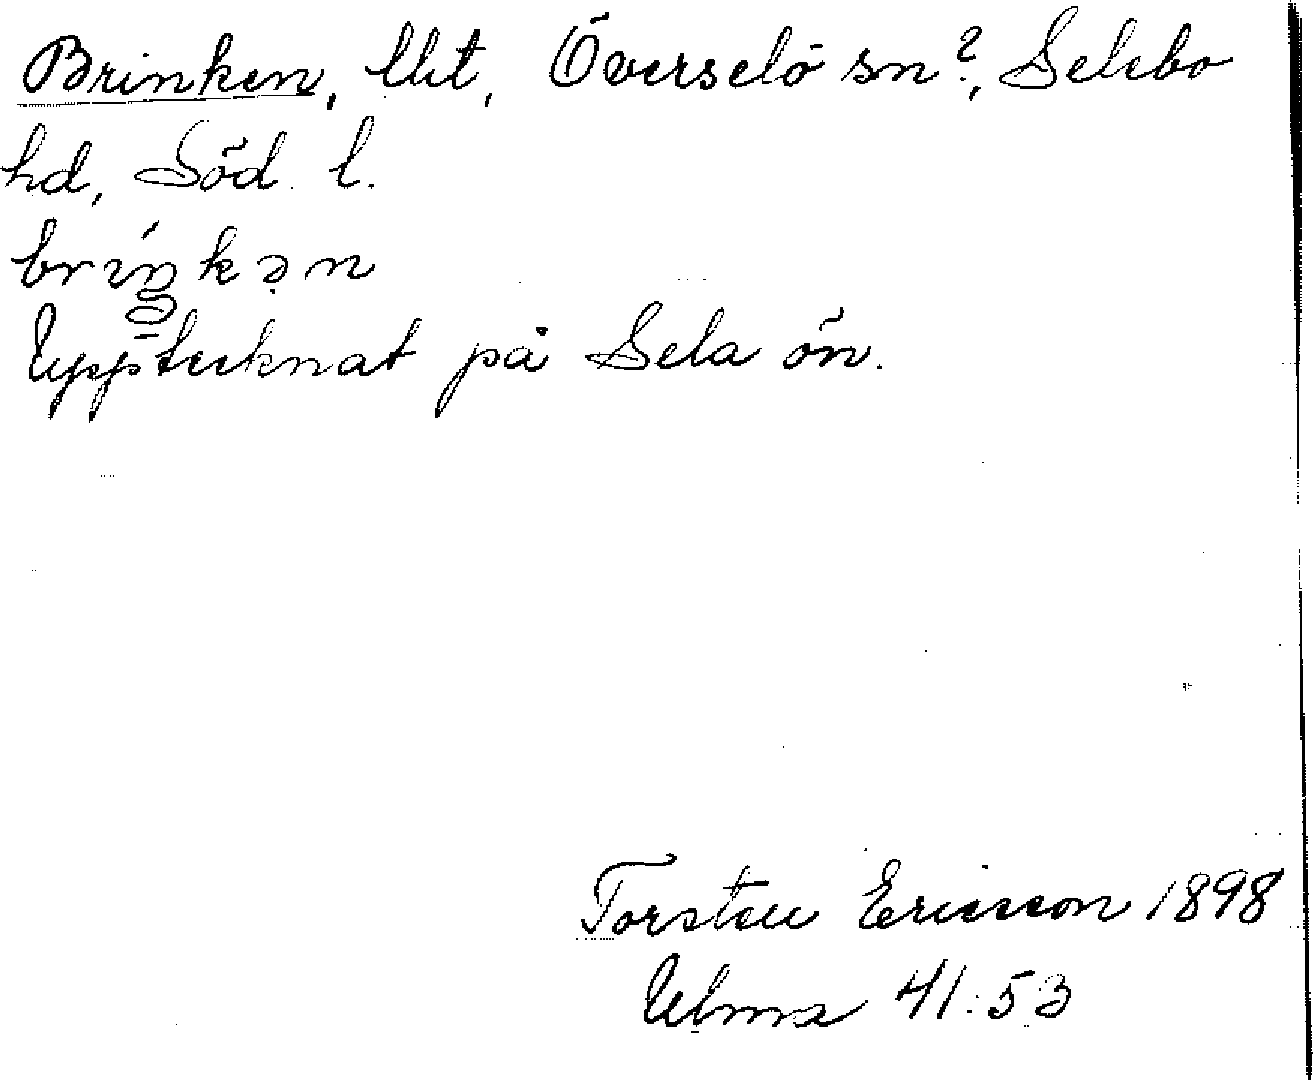 Brinken, lht, Överselö sn?, Selebo
hd, Söd. l.
bríŋkən
Upptecknat på Sela ön.
Torsten Ericsson 1898
Ulma 41:53